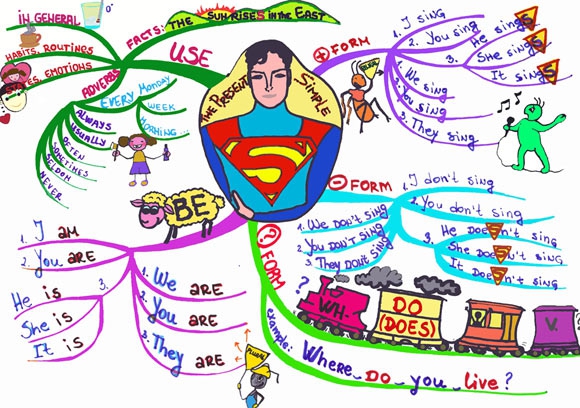 THE PRESENT SIMPLE
USE
IN GENERAL
FACTS: THE SUN RISES IN THE EAST
HABITS, ROUTINGS
STATES, EMOTIONS
ADVERBS
EVERY MONDAY
WEEK
MORNING...
ALWAYS
USUALLY
OFTEN
SOMETIMES
SELDOM
NEVER
+ FORM
1. I sing
2. You sing
3. He sings
She sings
It sings
1. We sing
2. You sing
3. They sing
- FORM
1. I don't sing
2. You don't sing
3. He doesn't sing
She doesn't sing
It doesn't sing
1. We don't sing
2. You don't sing
3. They don't sing
? FORM
?
WH-
DO
(DOES)
V.
example: Where DO you live?
BE
1. I AM
2. You ARE
3. He is
She is
It is
1. We ARE
2. You ARE
3. They ARE
PLURAL